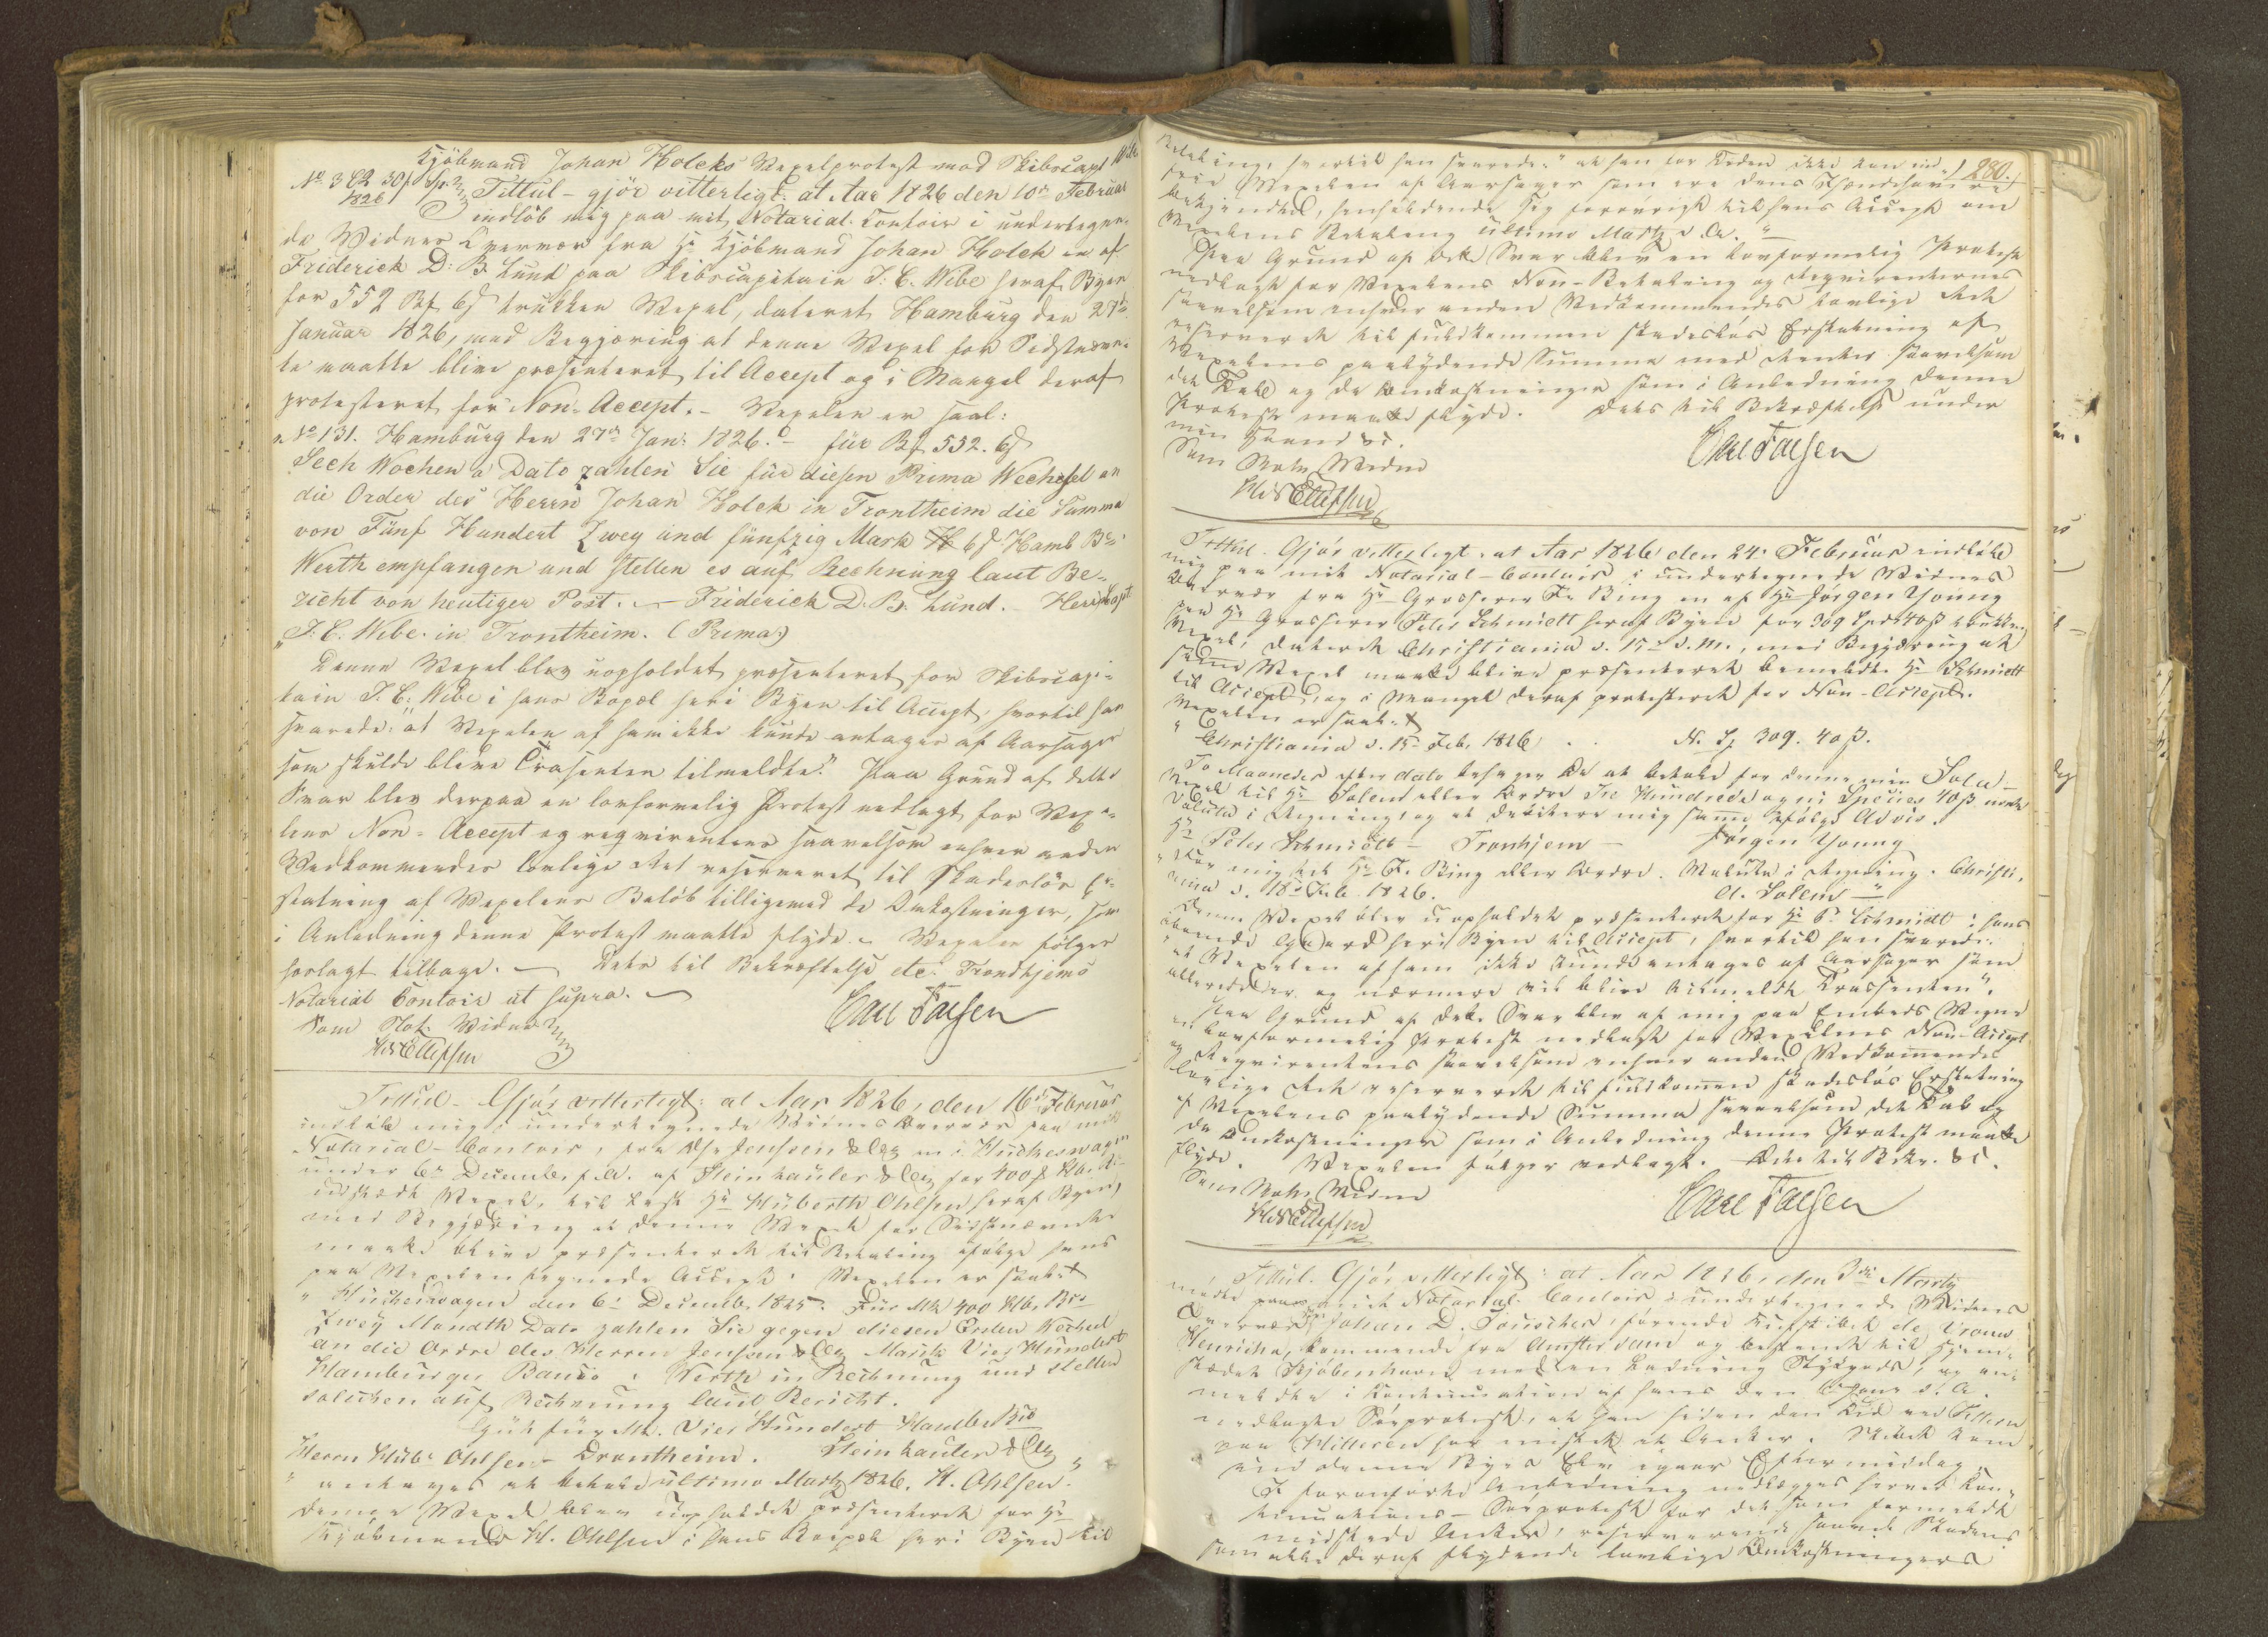 Kjöbmand Johan Holcks Vexelprotest mod Skibscapt Wibe
No. 3
1826
Tittul - gjör vitterligt: at Aar 1826 den 10de Februar
indlöb mig paa mit Notarial-Contoir i undertegne-
de Vidners Overvær fra Hr Kjöbmand Johan Holck en af
Friderich D: B. Lund paa Skibscapitain J: C. Wibe heraf Byen
for 552 Bf 6ß trukken Vexel, dateret Hamburg den 27de
Januar 1826, med Begjæring at denne Vexel for Sidstnævn-
te maatte blive præsenteret til Accept og i Mangel deraf
protesteret for Non-Accept. - Vexelen er saal:
"No 131. Hamburg den 27de Jan: 1826. - für Bf 552. 6ß
Sech Wochen a Dato zahlen Sie für diesen Prima Wechesel an
die Order des Herrn Johan Holck in Trontheim die Summa
von Fünf Hundert Zwey und fünfzig Mark 6ß Hamb Bco
Werth empfangen und stellen es auf Rechnung laut Be-
richt von heutiger Post. - Friderich D. B. Lund. - Herr Capt
J: C. Wibe. in Trontheim. (Prima)
Denne Vexel blev uopholdet præsenteret for Skibscapi-
tain J. C. Wibe i hans Bopæl her i Byen til Accept, hvortil han
svarede: "at Vexelen af ham ikke kunde antages af Aarsager
som skulde blive Trasenten tilmeldte." Paa Grund af dette
Svar blev derpaa en lovformelig Protest nedlagt for Vexe-
lens Non-Accept og reqvirentens saavelsom enhver anden
Vedkommendes lovlige Ret reserveret til skadeslös Er-
statning af Vexelens Belöb tilligemed de Omkostninger, som
i Anledning denne Protest maatte flyde. - Vexelen fölger
herlagt tilbage. - Dets til Bekræftelse etc. Trondhjems
Notarial Contoir ut supra. -
Carl Falsen
Som Not: Vidne
Tittul - Gjör vitterligt: at Aar 1826, den 16de Februar
indlöb mig i undertegnede Vidners Overvær paa mit
Notarial-Contoir, fra Jenssen & Co en i Hückeswagen
under 6te December f. A. af Steinhauler & Co for 400 ƒ Hb. Bco
udstædt Vexel, til Last Hr Huberth Ohlsen heraf Byen,
med Begjæring at denne Vexel for Sidstnævnte
maatte blive præsenteret til Betaling ifölge hans
paa Vexelen tegnede Accept. Vexelen er saal:
"Hückeswagen den 6te Decemb. 1825. Für Mk 400 Hb. Bco
Zwey Monath Dato zahlen Sie gegen diesen Ersten Wechsel
an die Ordre des Herren Jensen & Co Mark Vier Hundert
Hamburger Banco. Werth in Rechnung und stellen
solchen auf Rechnung laut Bericht.
Gut für Mk. Vier Hundert Hamb. Bco
Herrn Hub: Ohlsen - Drontheim. Steinhauler & Co
" antages at betale ultimo Martz 1826. H. Ohlsen."
Denne Vexel blev uopholdet præsenteret for Hr
Kjöbmand H. Ohlsen i hans Boepæl her i Byen til
280.
Betaling, hvortil han svarede: "at han for Tiden ikke kan ind-
frie Vexelen af Aarsager som ere dens
bekjendte, henholdende sig forövrigt til hans Accept om
Vexelens Betaling ultimo Martz d. A. "
Paa Grund af dette Svar blev en lovformelig Protest
nedlagt for Vexelens Non-Betaling og Reqvirenternes
saavelsom enhver anden Vedkommendes lovlige Ret
reserveret til fuldkommen skadeslös Erstatning af
Vexelens paalydende Summa med Renter saavelsom
det Tab og de Omkostninger som i Anledning denne
Protest maatte flyde. Dets til Bekræftelse under
min Haand &c.
Carl Falsen
Som Notr. Vidne
Tittul. Gjör vitterligt: at Aar 1826 den 24. Februar indlöb
mig paa mit Notarial-Contoir i undertegnede Vidners
Overvær fra Hr Grosserer Fr. Bing en af Hr Jörgen Young
paa Hr Grosserer Peter Schmidt heraf Byen for 309 Spd 40ß trukken
Vexel, dateret Christiania d. 15de d. M., med Begjæring at
denne Vexel maatte blive præsenteret bemeldte Hr Schmidt
til Accept, og i Mangel deraf protesteret for Non-Accept.
Vexelen er saal:
"Christiania d. 15de Feb. 1826 . . N. Sp 309. 40ß.
To Maaneder efter dato behager De at betale for denne min Sola-
Vexel til Hr Solem eller Ordre Tre Hundrede og ni Species 40ß norsk
Valuta i Regning, og at debitere mig samme ifölge Advis.
Hr Peter Schmidt - Tronhjem - Jörgen Young
"For mig til Hr F. Bing eller Ordre. Valuta i Regning. Christi-
ania d. 18de Feb. 1826. A. Solem "
Denne Vexel blev uopholdet præsenteret for Hr P. Schmidt i hans
iboende Gaard her i Byen til Accept, hvortil han svarede:
"at Vexelen af ham ikke kunde antages af Aarsager som
allerede er og nærmere vil blive tilmeldt Trassenten".
Paa Grund af dette Svar blev af mig paa Embeds Vegne
en lovformelig Protest nedlagt for Vexelens Non-Accept
og Reqvirentens saavelsom enhver anden Vedkommendes
lovlige Ret reserveret til fuldkommen skadeslös Erstatning
af Vexelens paalydende Summa saavelsom det Tab og
de Omkostninger som i Anledning denne Protest maatte
flyde. Vexelen fölger vedlagt. Dets til Bekr. &c.
Som Notr. Vidne
Carl Falsen
Tittul. Gjör vitterligt: at Aar 1826, den 3die Martz
mödte paa mit Notarial-Contoir i undertegnede Vidners
Overvær Johan D. förende Kufskibet de Vrouw
Henricha, kommende fra Amsterdam og bestemt til Hjem-
stædet Kjöbenhavn med en Ladning Stykgods, og an-
meldte i Continuation af hans den Jan: d. A.
nedlagte Söeprotest, at han siden den Tid ved
paa Hitteren har mistet et Anker. Skibet kom
ind denne Byes Elv igaar Eftermiddag.
I foranförte Anledning nedlægges herved Con-
tinuations-Söeprotest for det som formeldt
mistede Anker, reserverende saavel Skadens
som alle deraf flydende lovlige Omkostningers